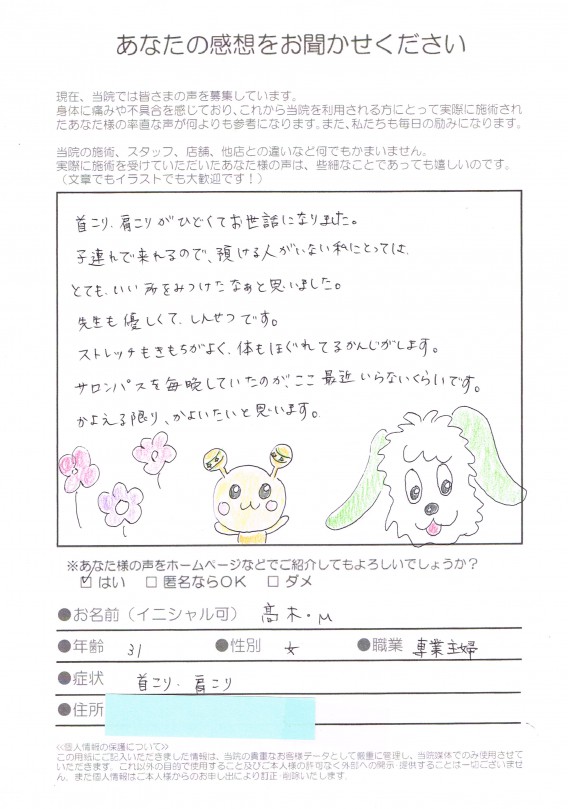 あなたの感想をお聞かせください
現在、当院では皆さまの声を募集しています。
身体に痛みや不具合を感じており、これから当院を利用される方にとって実際に施術され
たあなた様の率直な声が何よりも参考になります。また、私たちも毎日の励みになります。
当院の施術、スタッフ、店舗、他店との違いなど何でもかまいません。
実際に施術を受けていただいたあなた様の声は、些細なことであっても嬉しいのです。
（文章でもイラストでも大歓迎です！）
首こり、肩こりがひどくてお世話になりました。
子連れで来れるので、預ける人がいない私にとっては、
とても、いい所をみつけたなぁと思いました。
先生も優しくて、しんせつです。
ストレッチもきもちがよく、体もほぐれてるかんじがします。
サロンパスを毎晩していたのが、ここ最近いらないくらいです。
かよえる限り、かよいたいと思います。
※あなた様の声をホームページなどでご紹介してもよろしいでしょうか？
☑ はい □ 匿名ならOK □ ダメ
●お名前（イニシャル可） 髙木・M
●年齢 31 ●性別 女 ●職業 専業主婦
●症状 首こり、肩こり
●住所
≪個人情報の保護について≫
この用紙にご記入いただきました情報は、当院の貴重なお客様データとして厳重に管理し、当院媒体でのみ使用させて
いただきます。これ以外の目的で使用すること及びご本人様の許可なく外部への開示・提供することは一切ございませ
ん。また個人情報はご本人様からのお申し出により訂正・削除いたします。